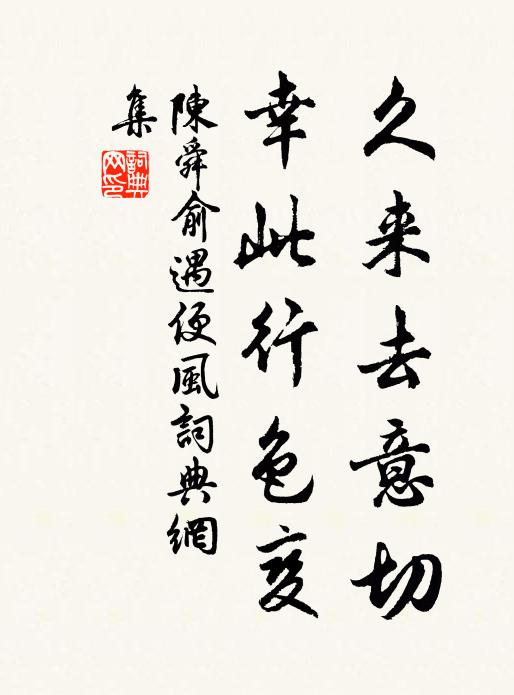 久来去意切
幸此行色变
陳舜俞遇便風詞典網
集
詞典
网印